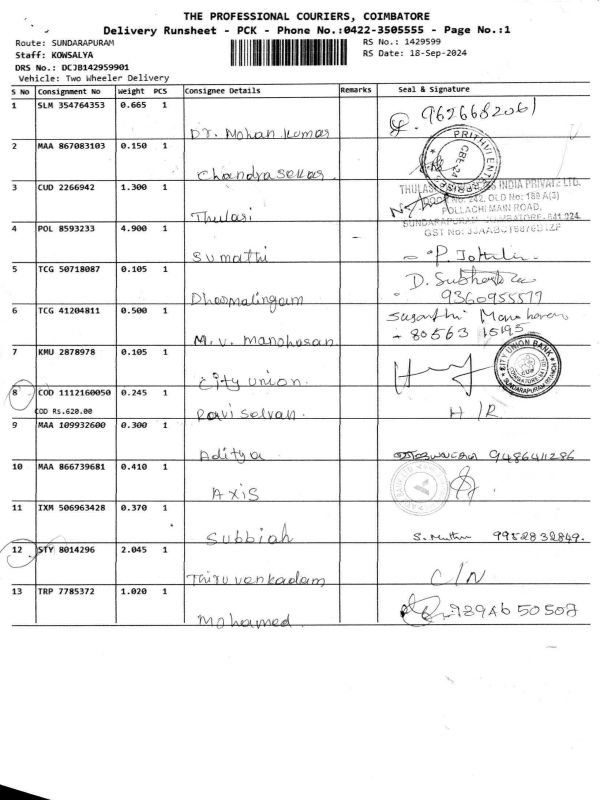 THE PROFESSIONAL COURIERS, COIMBATORE
Delivery Runsheet - PCK - Phone No.:0422-3505555 - Page No.:1
Route: SUNDARAPURAM RS No.: 1429599
Staff: KOWSALYA RS Date: 18-Sep-2024
DRS No.: DCJB142959901
Vehicle: Two Wheeler Delivery
S No Consignment No Weight PCS Consignee Details Remarks Seal & Signature
1 SLM 354764353 0.665 1 Dr. Mohan Kumar 9626682061
2 MAA 867083103 0.150 1 Chandrasekar. PRITHVI ENTERPRISES CBE-24
3 CUD 2266942 1.300 1 Thulasi
THULAS INDIA PRIVATE LTD.
DOOR No: 242, OLD No: 189 A(3)
POLLACHI MAIN ROAD,
SUNDARAPURAM, COIMBATORE-641 024.
4 POL 8593233 4.900 1 Sumathi
5 TCG 50718087 0.105 1 Dharmalingam D.
9360955577
6 TCG 41204811 0.500 1 M.V. Manoharan
Manoharan
- 80563 15195
7 KMU 2878978 0.105 1 City Union CITY UNION BANK
8 COD 1112160050 0.245 1 Ravi Selvan. H/R
COD Rs.620.00
9 MAA 109932600 0.300 1 Aditya 9486411286
10 MAA 866739681 0.410 1 AXIS
11 IXM 506963428 0.370 1 Subbiah S. Muthu 9952832849.
12 STY 8014296 2.045 1 Thiruvenkadam C/N
13 TRP 7785372 1.020 1 Mohamed.